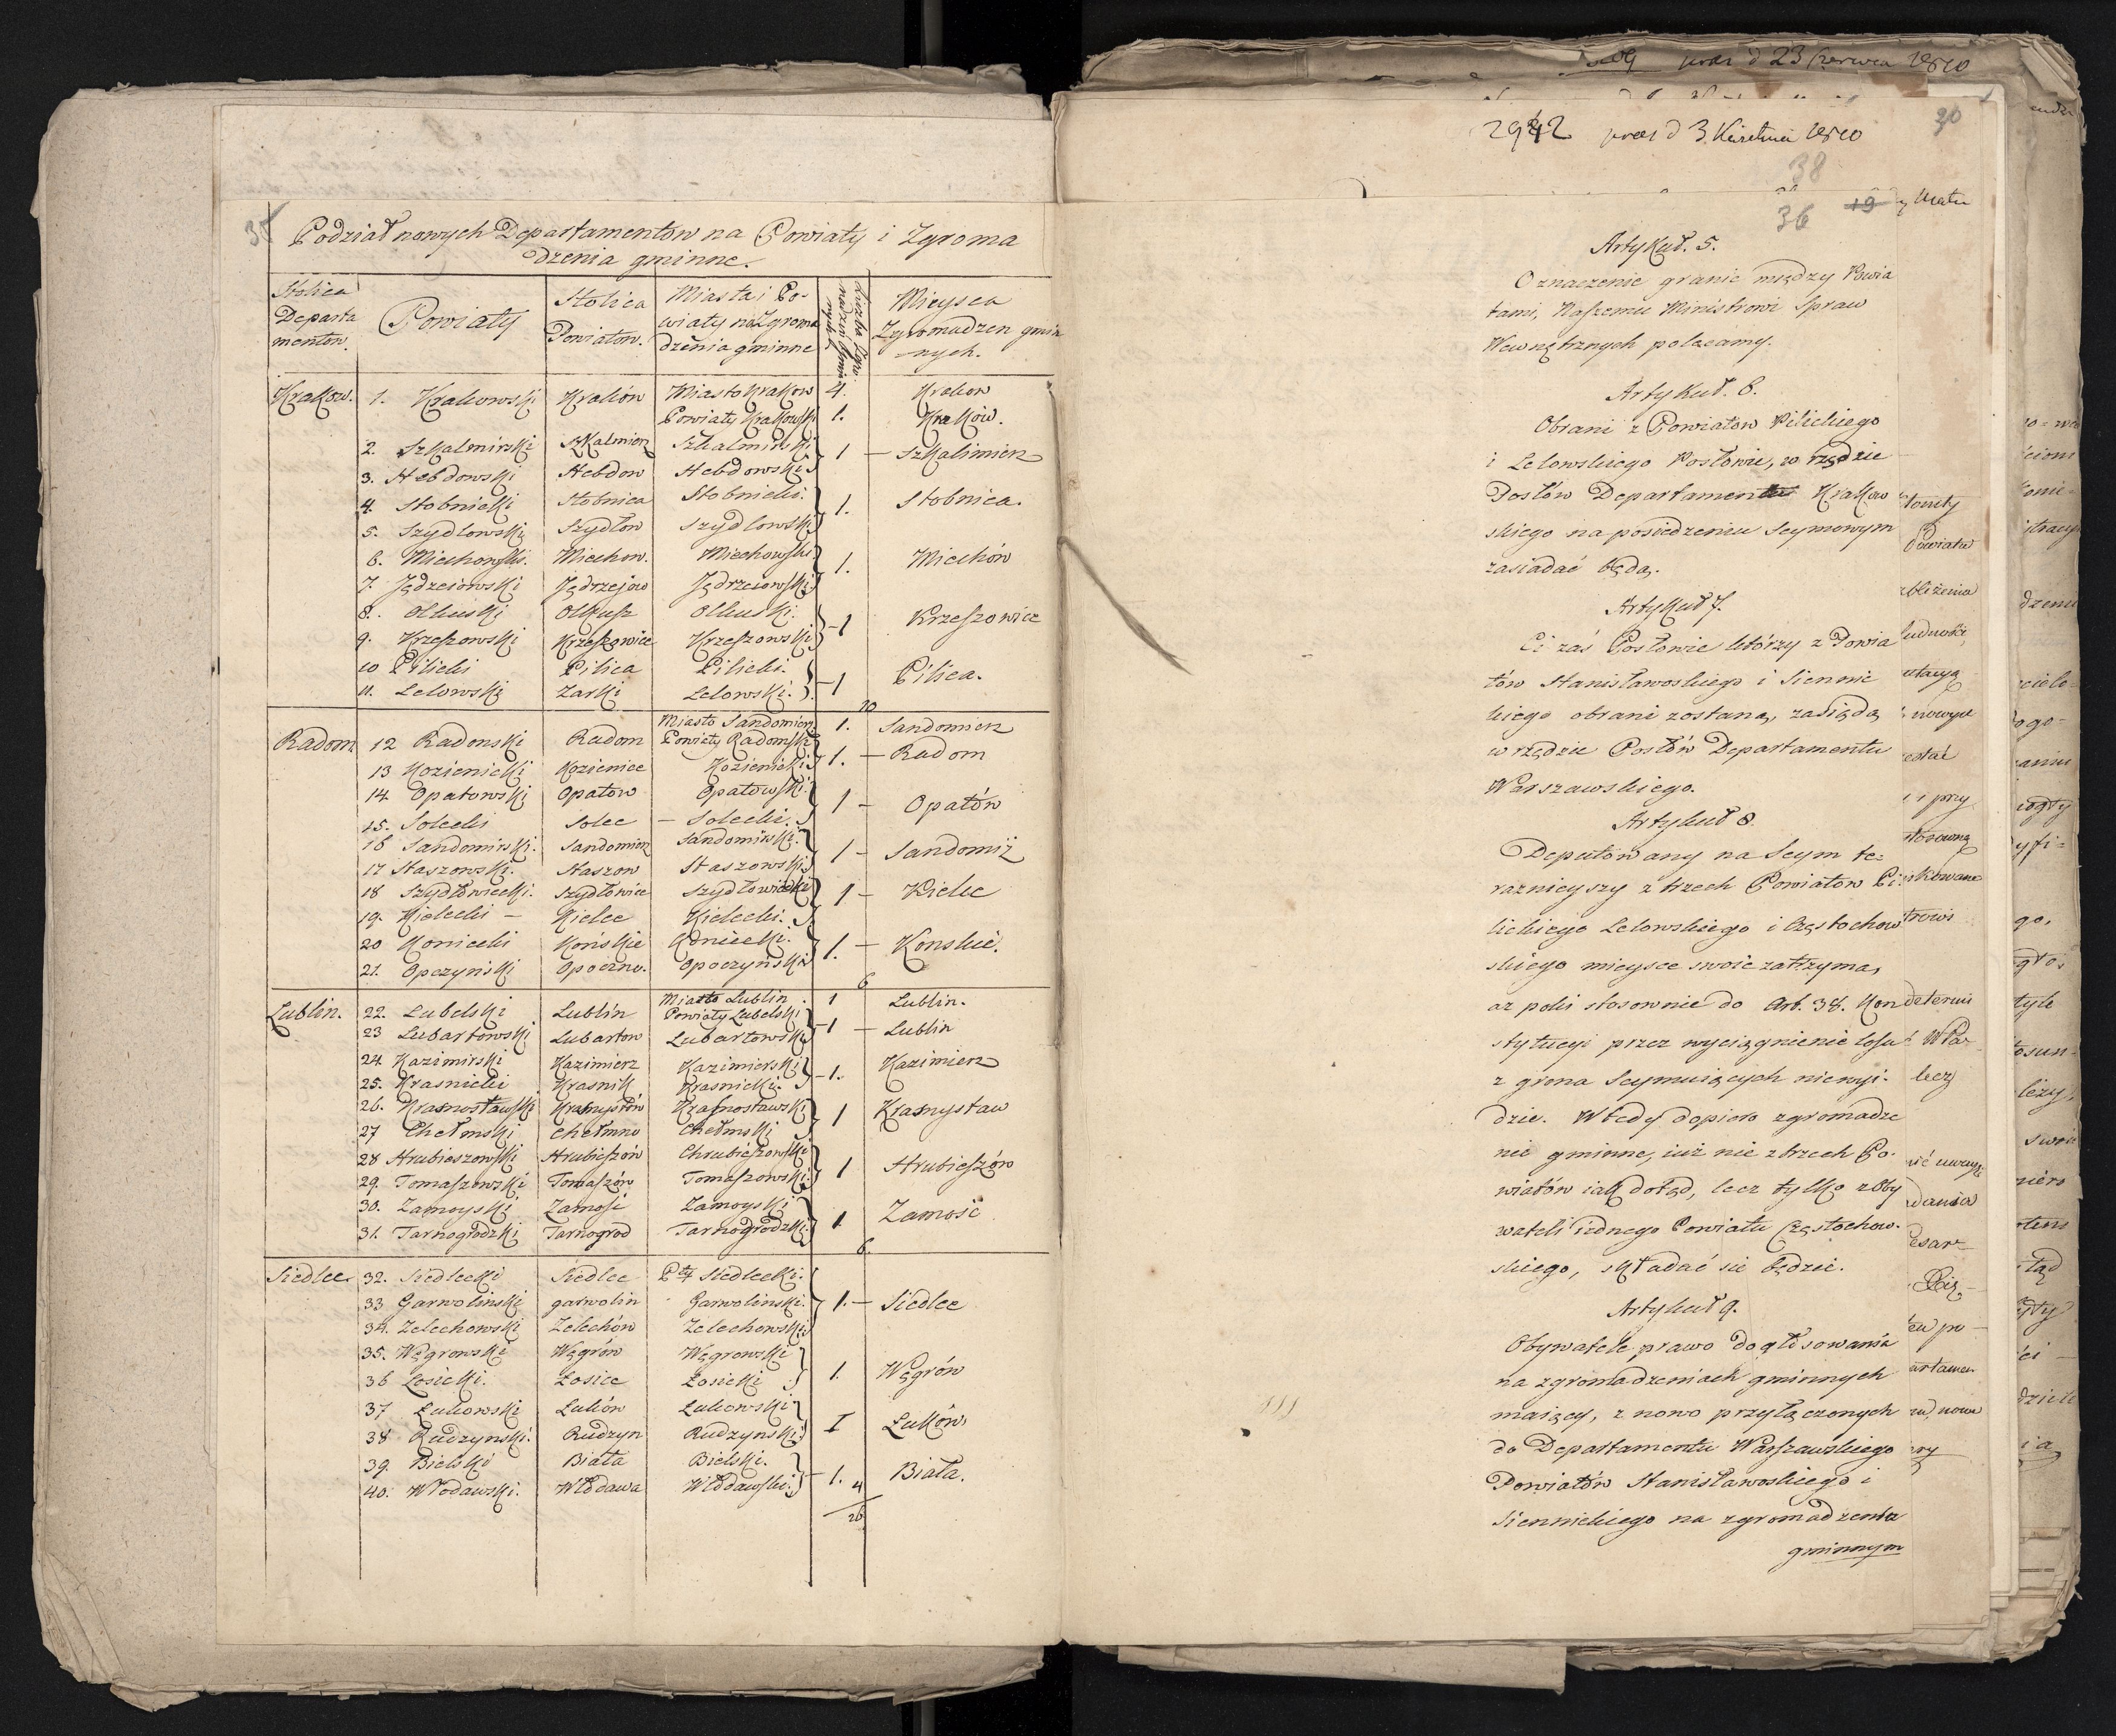 35
Podział nowych Departamentow na Powiaty i Zgroma
dzenia gminne.
Stolica
Departa
mentow.
Powiaty
Stolica
Powiatow.
Miasta i Po-
wiaty na Zgroma
dzenia gminne
Liczba Zgro-
madzeń Gmin
nych.
Mieysca
Zgromadzen gmin
-nych.
Krakow. 1. Krakowski Kraków Miasto Krakow 4. Krakow
Powiaty Krakowski 1. Kraków.
2. Szkalmirski Szkalmierz Szkalmirski 1 — Szkalimierz
3. Hebdowski Hebdow Hebdowski
4. Stobnicki Stobnica Stobnicki. 1. Stobnica.
5. Szydlowski Szydlow Szydlowski
6. Miechowski. Miechow. Miechowski. 1. Miechów
7. Jędrzeiowski Jędrzejow Jędrzeiowski
8. Olkuski Olkusz Olkuski. 1 Krzeszowice
9. Krzeszowski Krzeszowice Krzeszowski
10 Pilicki Pilica Pilicki. 1 Pilica.
11. Lelowski Zarki Lelowski.
10
Radom Miasto Sandomierz 1. Sandomierz
12 Radomski Radom Powiaty Radomski 1. — Radom
13 Kozienicki Kozienice Kozienicki
14. Opatowski Opatow Opatowski. 1 — Opatów
15. Solecki Solec — Solecki.
16 Sandomirski. Sandomierz Sandomirski. 1 — Sandomiż
17 Staszowski. Staszow Staszowski
18 Szydłowiecki. Szydłowice Szydłowiecki 1 — Kielce
19. Kielecki — Kielce Kielecki.
20 Koniecki Końskie Koniecki. 1. — Konskie.
21. Opczyński Opoczno. Opoczyński
6
Lublin. Miasto Lublin 1 Lublin.
22. Lubelski Lublin Powiaty Lubelski 1 — Lublin
23 Lubartowski Lubartow Lubartowski
24 Kazimirski Kazimierz Kazimierski 1. Kazimierz
25. Krasnicki Krasnik Krasnicki.
26. Krasnostawski Krasnystów Krasnostawski 1 Krasnystaw
27 Chełmski Chełmno Chełmski
28 Hrubieszowski Hrubieszów Chrubieszowski 1 Hrubieszów
29. Tomaszowski Tomaszów Tomaszowski.
30. Zamoyski Zamość Zamoyski 1 Zamość
31. Tarnogrodzki Tarnogrod Tarnogrodzki.
6.
Siedlce. 32. Siedlecki Siedlce Pty Siedlecki.
33 Garwolinski garwolin Garwolinski. 1. — Siedlce
34. Zelechowski Zelechów Zelechowski
35. Węgrowski Węgrów Węgrowski 1. Węgrów
36 Łosicki. Łosice Łosicki
37 Łukowski Łuków Łukowski I Łuków,
38 Rudzynski. Rudzyn Rudzynski.
39. Bielski Biała Bielski. 1. Biała.
40. Włodawski. Włodawa Włodawski.
4
26
pres d 23 Czerwca 1810
2942 pres d 3 Kwietnia 1810
30
38
36
19
Artykuł. 5.
Oznaczenie granic między Powia
tami, Naszemu Ministrowi Spraw
Wewnętrznych polecamy.
Artykuł. 6.
Obrani z Powiatow Pilickiego
i Lelowskiego Posłowie, w rzędzie
Posłów Departamentu Krakow
skiego na posiedzeniu Seymowym
zasiadać będą.
Artykuł 7.
Ci zaś Posłowie którzy z Powia
tów Stanisławoskiego i Siennic
kiego obrani zostaną, zasiędą
w rzędzie Posłów Departamentu
Warszawskiego.
Artykuł 8.
Deputowany na Seym te-
raznieyszy z trzech Powiatow Pi-
lickiego Lelowskiego i Częstochow
skiego mieysce swoie zatrzyma,
az poki stosownie do Art. 38. Kon
stytucyi przez wyciągnienie losu
z grona Seymuiących niewyi-
dzie. Wtedy dopioro zgromadze
nie gminne, iuż nie z trzech Po-
wiatów iak dotąd, lecz tylko z Oby
wateli iednego Powiatu Częstochow-
skiego, składać sie będzie.
Artykuł 9.
Obywatele prawo do głosowania
na zgromadzeniach gminnych
maiący, z nowo przyłączonych
do Departamentu Warszawskiego
Powiatów Stanisławoskiego i
Siennickiego na zgromadzeniu
gminnym